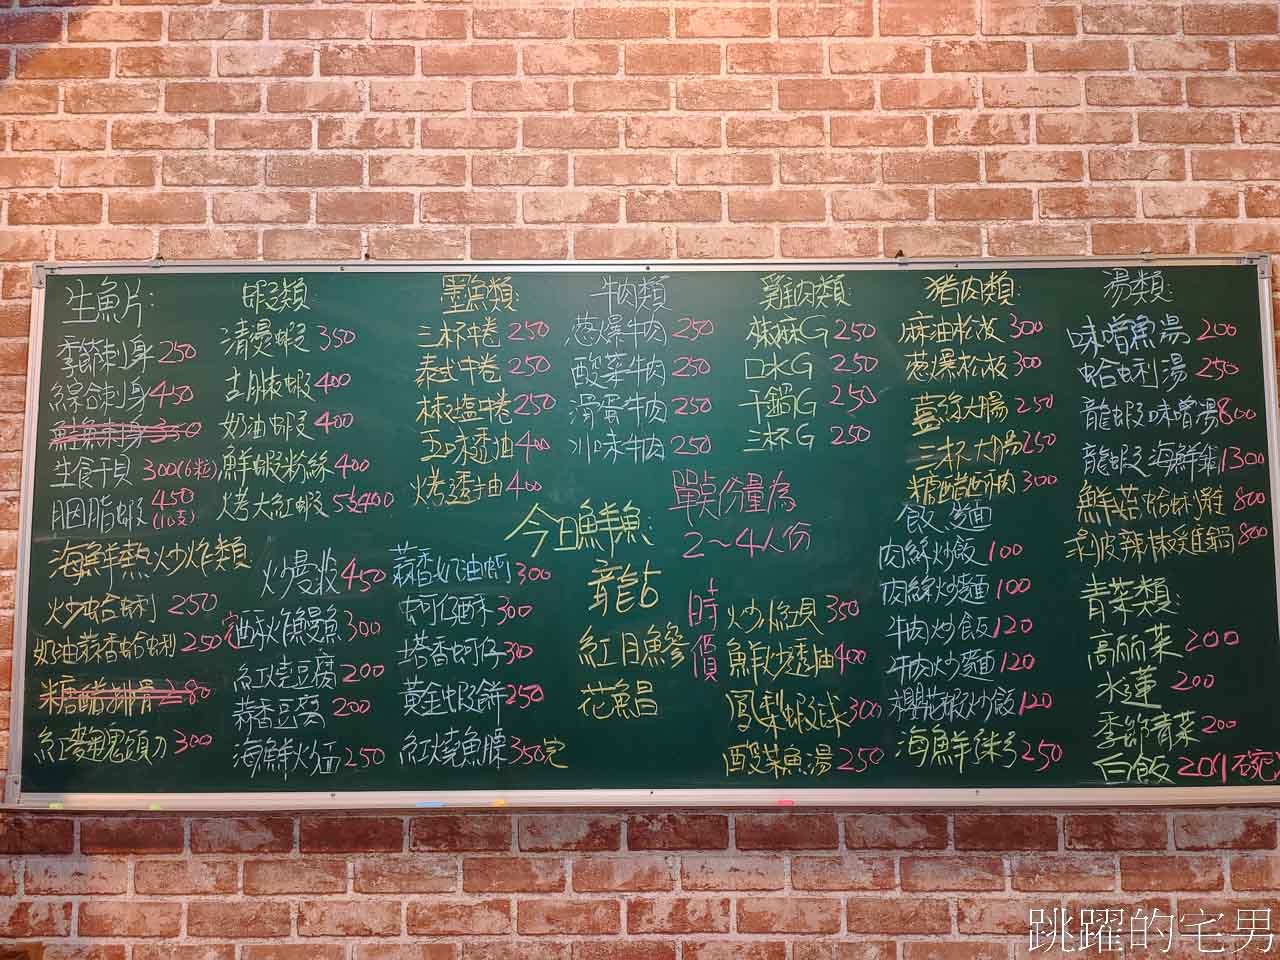 生魚片:
季節刺身 250
綜合刺身 450
鮭魚刺身 350
生食干貝 300(6粒)
胭脂蝦 450
(10支)
蝦類:
清燙蝦 350
胡椒蝦 400
奶油蝦 400
鮮蝦粉絲 400
烤大紅蝦 5支400
墨魚類:
三杯中卷 250
泰式中卷 250
椒塩中卷 250
五味透抽 400
烤透抽 400
牛肉類
葱爆牛肉 250
酸菜牛肉 250
滑蛋牛肉 250
川味牛肉 250
雞肉類
椒麻G 250
口水G 250
干鍋G 250
三杯G 250
豬肉類:
麻油松板 300
葱爆松板 300
薑絲大腸 250
三杯大腸 250
糖醋肉 300
湯類:
味噌魚湯 200
蛤蜊湯 250
龍蝦味噌湯 800
龍蝦海鮮鍋 1300
鮮菇蛤蜊雞 800
剝皮辣椒雞鍋 800
單點份量為
2~4人份
今日鮮魚:
龍占
紅目鰺
花魚昌
時價
海鮮熱炒炸類
炒蛤蜊 250
奶油蒜香蛤蜊 250
糖醋排骨 280
紅麴鬼頭刀 300
炒曼波 450
酥炸鰻魚 300
紅燒豆腐 200
蒜香豆腐 200
海鮮炒麵 250
蒜香奶油蚵 300
蚵仔酥 300
塔香蚵仔 300
黃金蝦餅 250
紅燒魚膘 350 完
炒孔貝 350
鮮炒透抽 400
鳳梨蝦球 300
酸菜魚湯 250
飯、麵
肉絲炒飯 100
肉絲炒麵 100
牛肉炒飯 120
牛肉炒麵 120
櫻花蝦炒飯 120
海鮮粥 250
青菜類:
高麗菜 200
水蓮 200
季節青菜 200
白飯 20(1碗)
跳躍的宅男